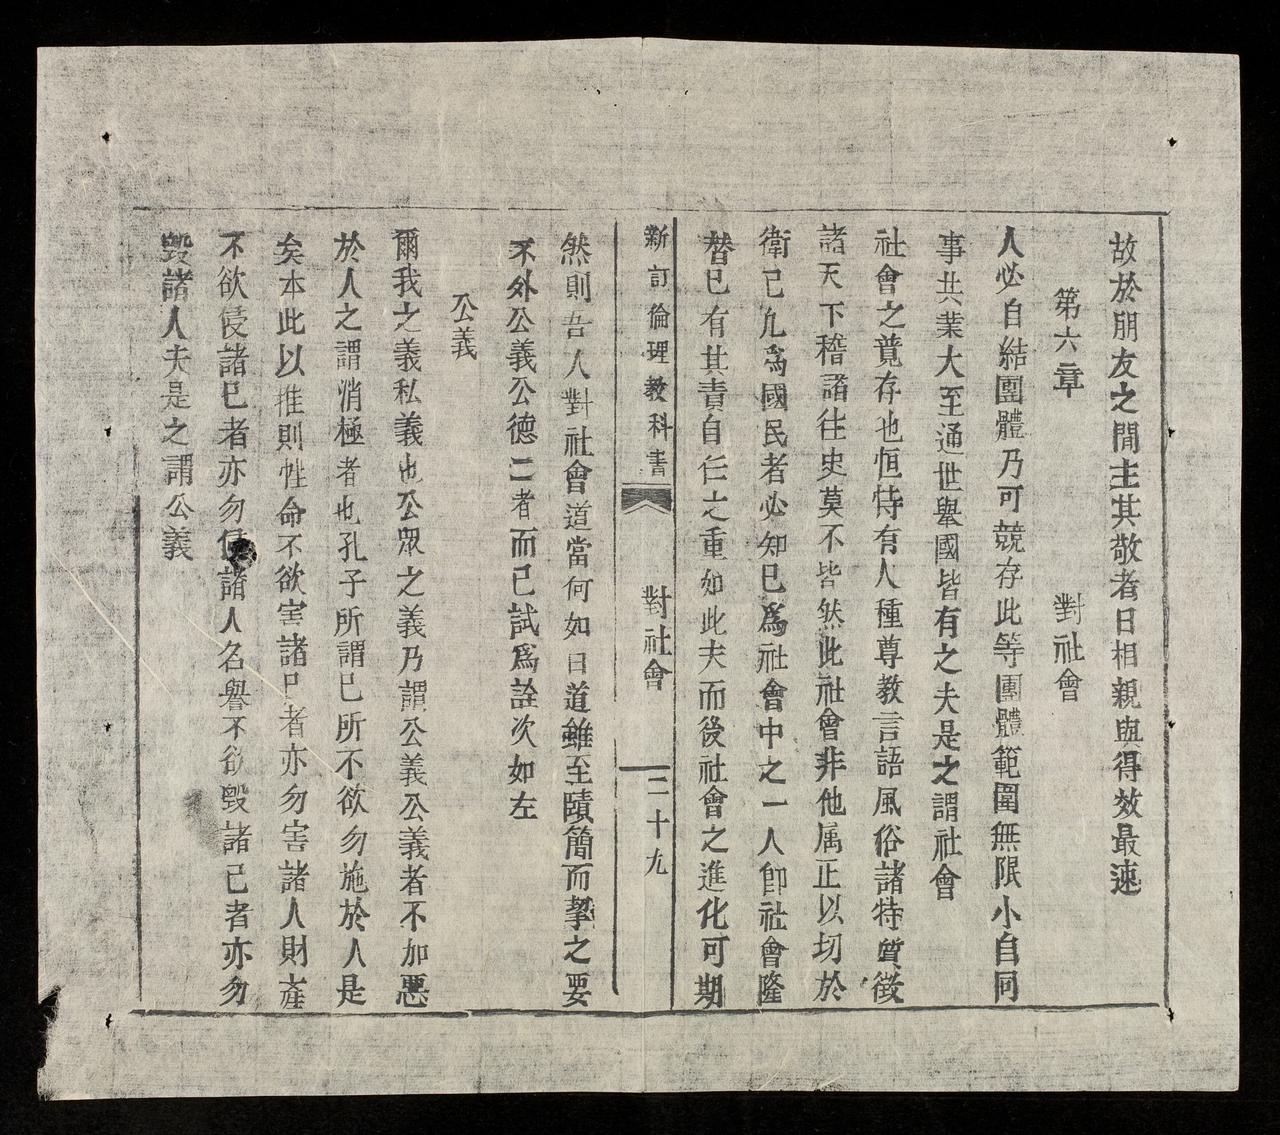 故於朋友之間主其敬者日相親與得效最速
第六章　對社會
人必自結團體乃可競存此等團體範圍無限小自同
事共業大至通世舉國皆有之夫是之謂社會
社會之竟存也恒恃有人種尊教言語風俗諸特質徵
諸天下稽諸往史莫不皆然此社會非他属正以切於
衛已凢爲國民者必知已爲社會中之一人卽社會隆
替已有其責自任之重如此夫而後社會之進化可期
新訂倫理教科書　對社會　二十九
然則吾人對社會道當何如曰道雖至賾簡而挈之要
不外公義公德二者而已試爲詮次如左
公義
爾我之義私義也公眾之義乃謂公義公義者不加惡
於人之謂消極者也孔子所謂已所不欲勿施於人是
矣本此以推則性命不欲害諸已者亦勿害諸人財產
不欲侵諸已者亦勿侵諸人名譽不欲毀諸已者亦勿
毀諸人夫是之謂公義